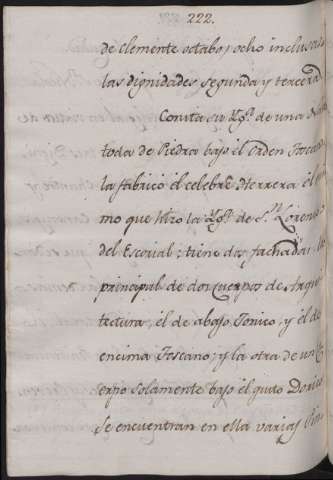 222.
de Clemente octabo, ocho inclusas
las dignidades segunda y tercera
Consta su Ygª. de una
toda de Piedra bajo el Orden Toscano
la fabricó el celebre Herrera el
mo que hizo la Ygª. de Sn. Lorenzo
del Escorial; tiene dos fachadas la
principal de dos cuerpos de Arqui
tectura, el de abajo Jonico, y el de
encima Toscano, y la otra de un Cu
erpo solamente bajo el gusto Dorico
Se encuentran en ella varias